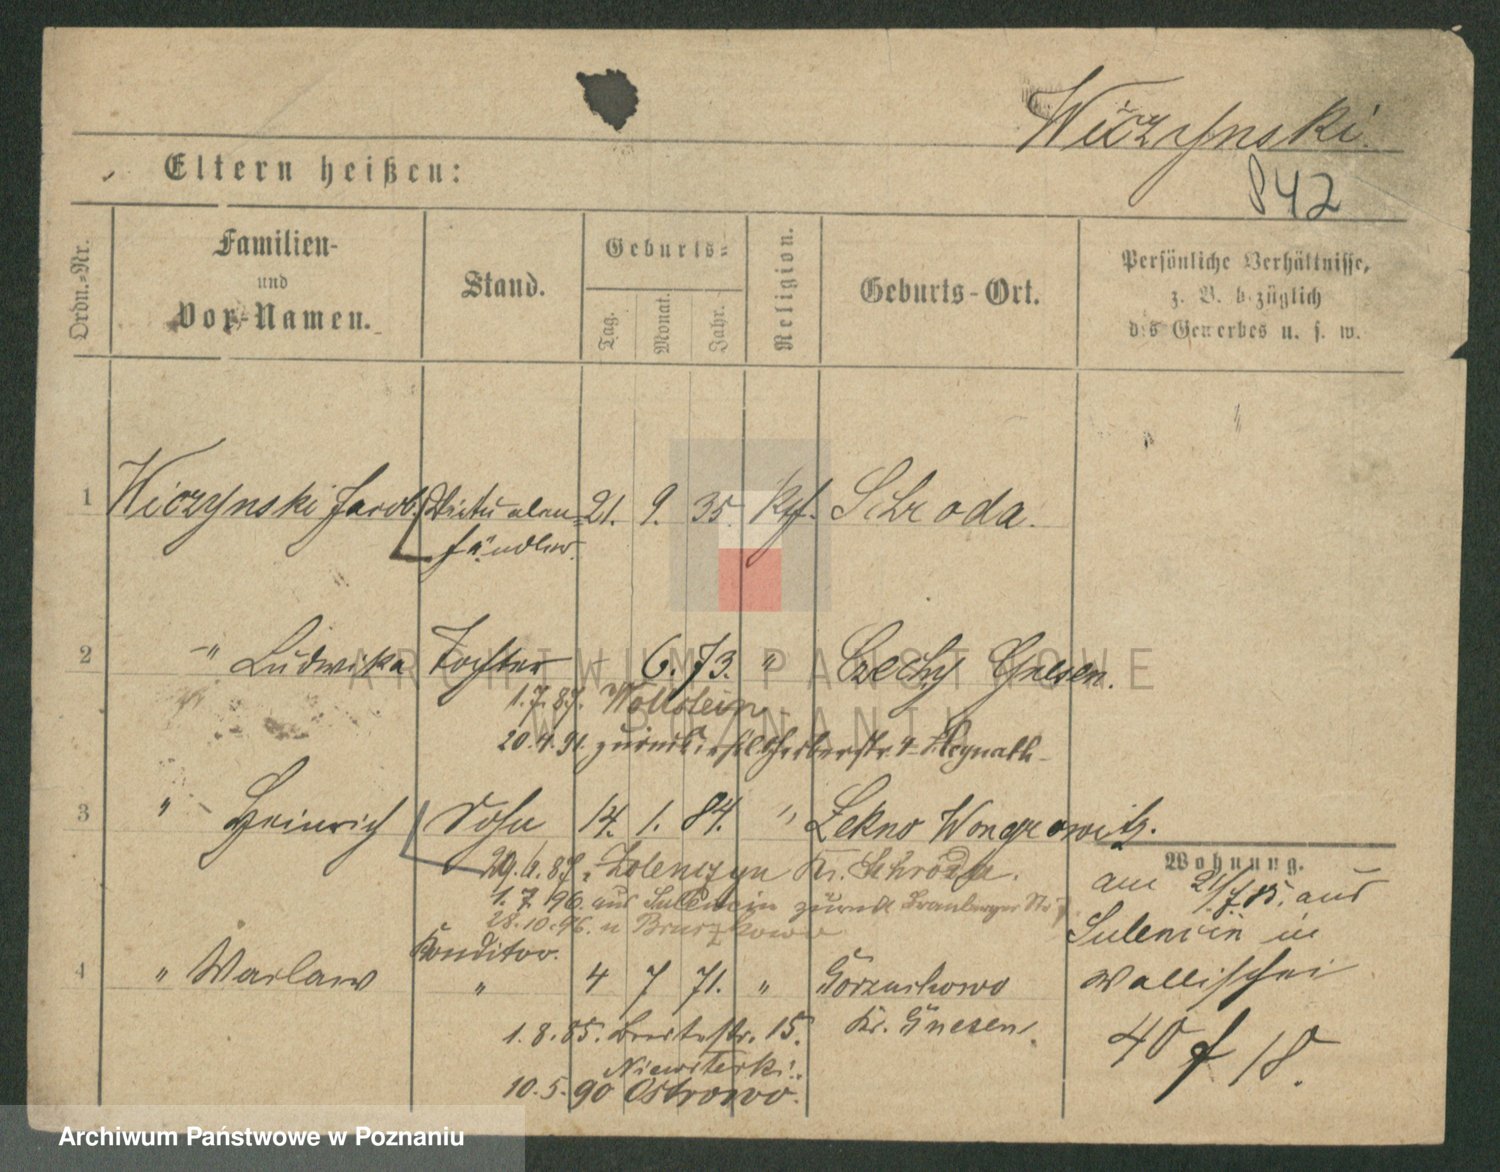 Wiczynski.
842
Eltern heißen:
Ordn.-Nr.
Familien-
und
Vor-Namen.
Stand.
Geburts-
Tag.
Monat.
Jahr.
Religion.
Geburts-Ort.
Persönliche Verhältnisse,
z. B. bezüglich
des Gewerbes u. s. w.
1 Wiczynski Jacob. Victualien= 21. 9. 35. Kf. Schroda.
händler.
2 " Ludwika Tochter 6. 73. " Czechy Gnesen.
1.7.87. Wollstein
20.4.91. zurück 4
3 " Heinrich Sohn 14. 1. 84. " Lekno Wongrowitz.
Wohnung.
29. 87. Kr. Schroda.
am 21/7 85. aus
1.7.96. aus Sulencin zurück
28.10.96. n
Sulencin in
Konditor.
4 " Waclaw " 4 7 71. " Gorzuchowo
Wallischei
1.8.85. Breitestr. 15. Kr. Gnesen.
40 f 18.
10.5.90 Ostrowo.
ARCHIWUM PAŃSTWOWE
W POZNANIU
Archiwum Państwowe w Poznaniu